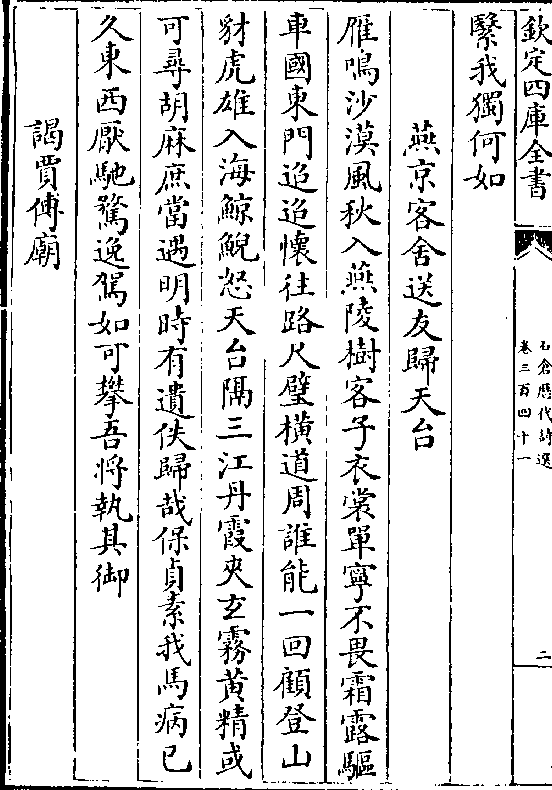 欽定四庫全書
石倉歷代詩選
卷三百四十一
二
繄我獨何如
燕京客舍送友歸天台
雁鳴沙漠風秋入燕陵樹客子衣裳單寧不畏霜露驅
車國東門迢迢懷往路尺璧橫道周誰能一回顧登山
豺虎雄入海鯨鯢怒天台隔三江丹霞夾玄霧黄精或
可尋胡麻庶當遇明時有遺佚歸哉保貞素我馬病已
久東西厭馳騖逸駕如可攀吾將執其御
謁賈傅廟